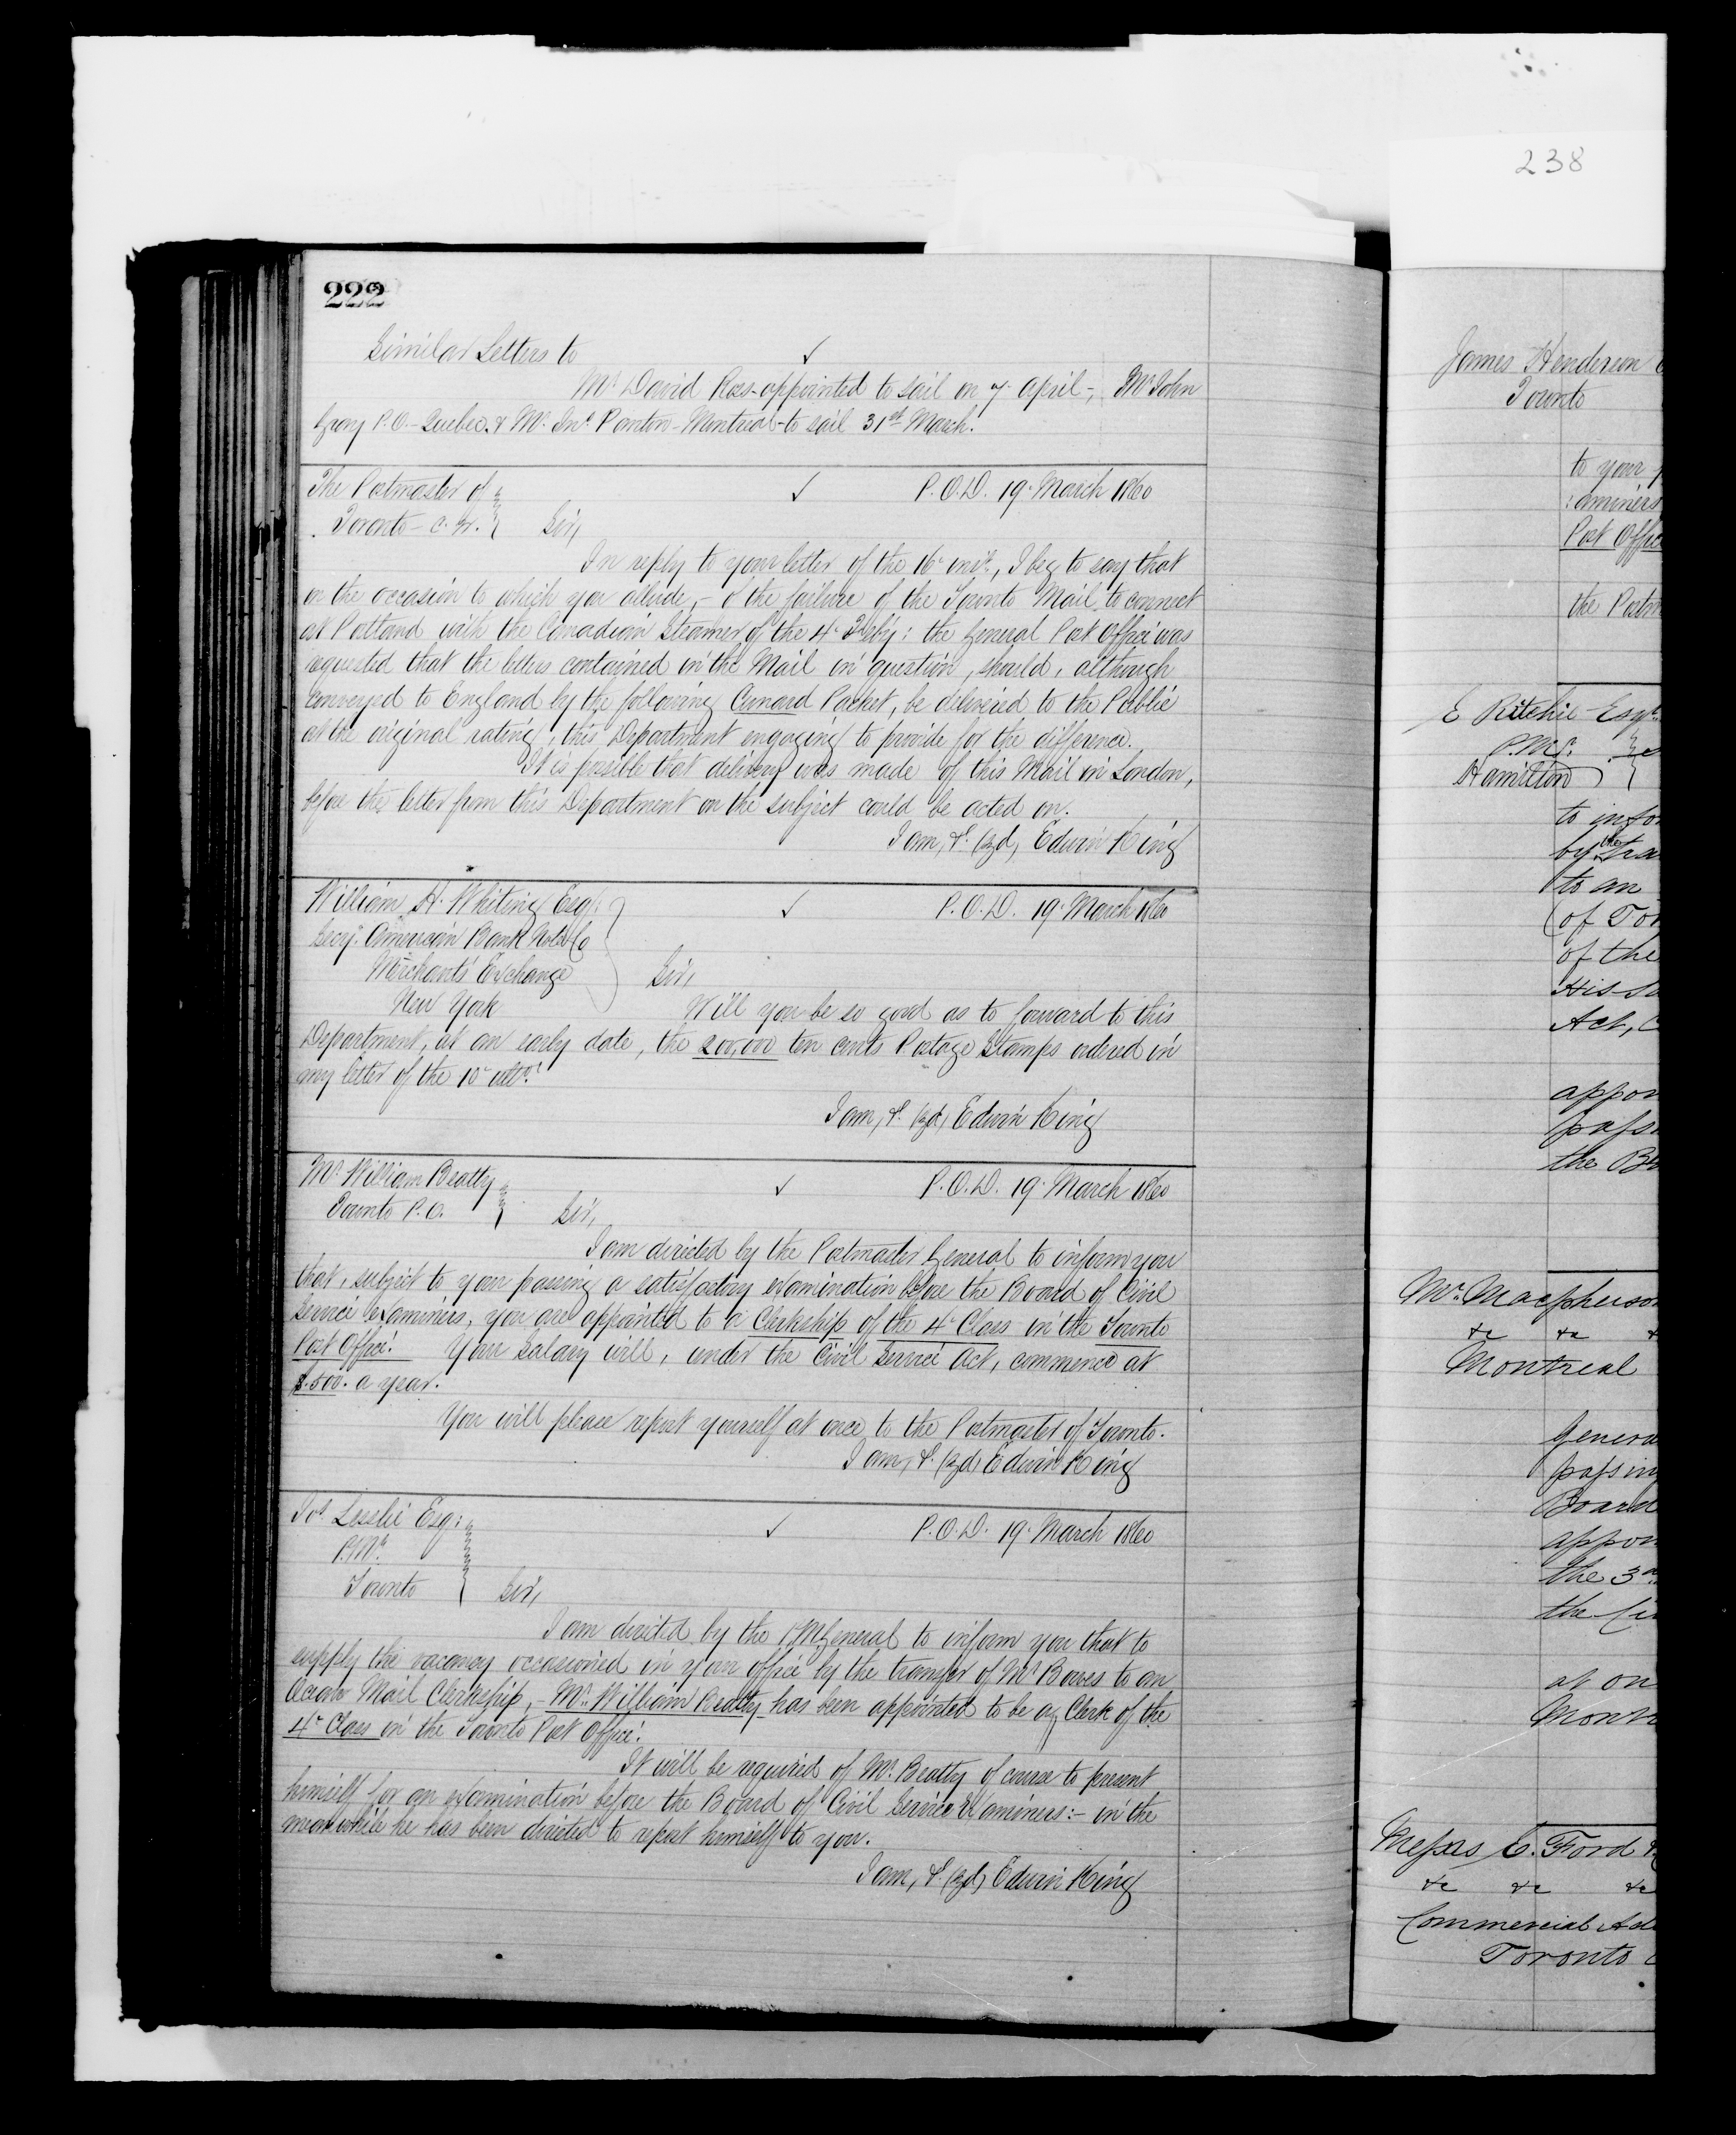 238
222
Similar Letters to ✓
Mr David Ross - appointed to sail on 7 April -, Mr John
Gray P.O. - Quebec. & Mr Jno Panton - Montreal - to sail 31st March.
The Postmaster of ✓ P.O.D. 19. March 1860
Toronto - C. W. Sir,
In reply to your letter of the 16 inst., I beg to say that
on the occasion to which you allude, - of the failure of the Toronto Mail to connect
at Portland with the Canadian Steamer of the 4 Feby: the General Post Office was
requested that the letters contained in the Mail in question, should, although
conveyed to England by the following Cunard Packet, be delivered to the Public
at the original rating, this Department engaging to provide for the difference.
It is possible that delivery was made of this Mail in London,
before the letter from this Department on the subject could be acted on.
I am, &c (sgd) Edwin King
William H. Whiting Esq. ✓ P.O.D. 19. March 1860
Secy. American Bank Note Co
Merchants' Exchange Sir,
New York Will you be so good as to forward to this
Department, at an early date, the 200,000 ten cents Postage Stamps ordered in
my letter of the 10 ulto.
I am, &c (sgd) Edwin King
Mr William Beatty ✓ P.O.D. 19. March 1860
Toronto P.O. Sir,
I am directed by the Postmaster General to inform you
that, subject to your passing a satisfactory examination before the Board of Civil
Service Examiners, you are appointed to a Clerkship of the 4 Class in the Toronto
Post Office. Your Salary will, under the Civil Service Act, commence at
$.500. a year.
You will please report yourself at once to the Postmaster of Toronto.
I am, &c (sgd) Edwin King
Jos. Lesslie Esq: ✓ P.O.D. 19. March 1860
P.Mr.
Toronto Sir,
I am directed by the P.M General to inform you that to
supply the vacancy occasioned in your office by the transfer of Mr Bowes to an
Ocean Mail Clerkship, - Mr. William Beatty has been appointed to be a Clerk of the
4 Class in the Toronto Post Office.
It will be required of Mr. Beatty of course to present
himself for an examination before the Board of Civil Service Examiners: - in the
meanwhile he has been directed to report himself to you.
I am, &c (sgd) Edwin King
James Henderson
Toronto
to your
:aminers
Post Offic
the Postm
E Ritchie - Esqr.
P.Mr.
Hamilton
to infor
by the tra
to an
(of Tor
of the
His sa
Act, C
appoi
passi
the Bo
Mr. Macpherson
&c &c
Montreal
Genera
passing
Board
appoi
the 3rd
the Ci
at on
Montr
Messrs C. Ford
&c &c &c
Commercial Ad
Toronto